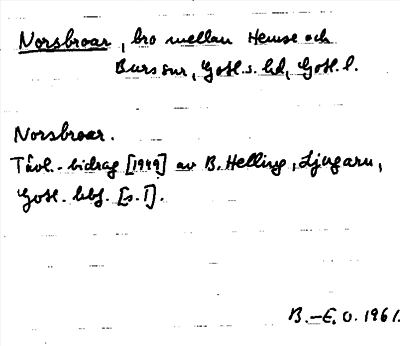 Norsbroar, bro mellan Hemse och
Burs snr, Gotl. s. hd, Gotl. l.
Norsbroar.
Tävl.-bidrag [1949] av B. Helling, Ljugarn,
Gotl. hbf. [s. 1].
B.–E. O. 1961.